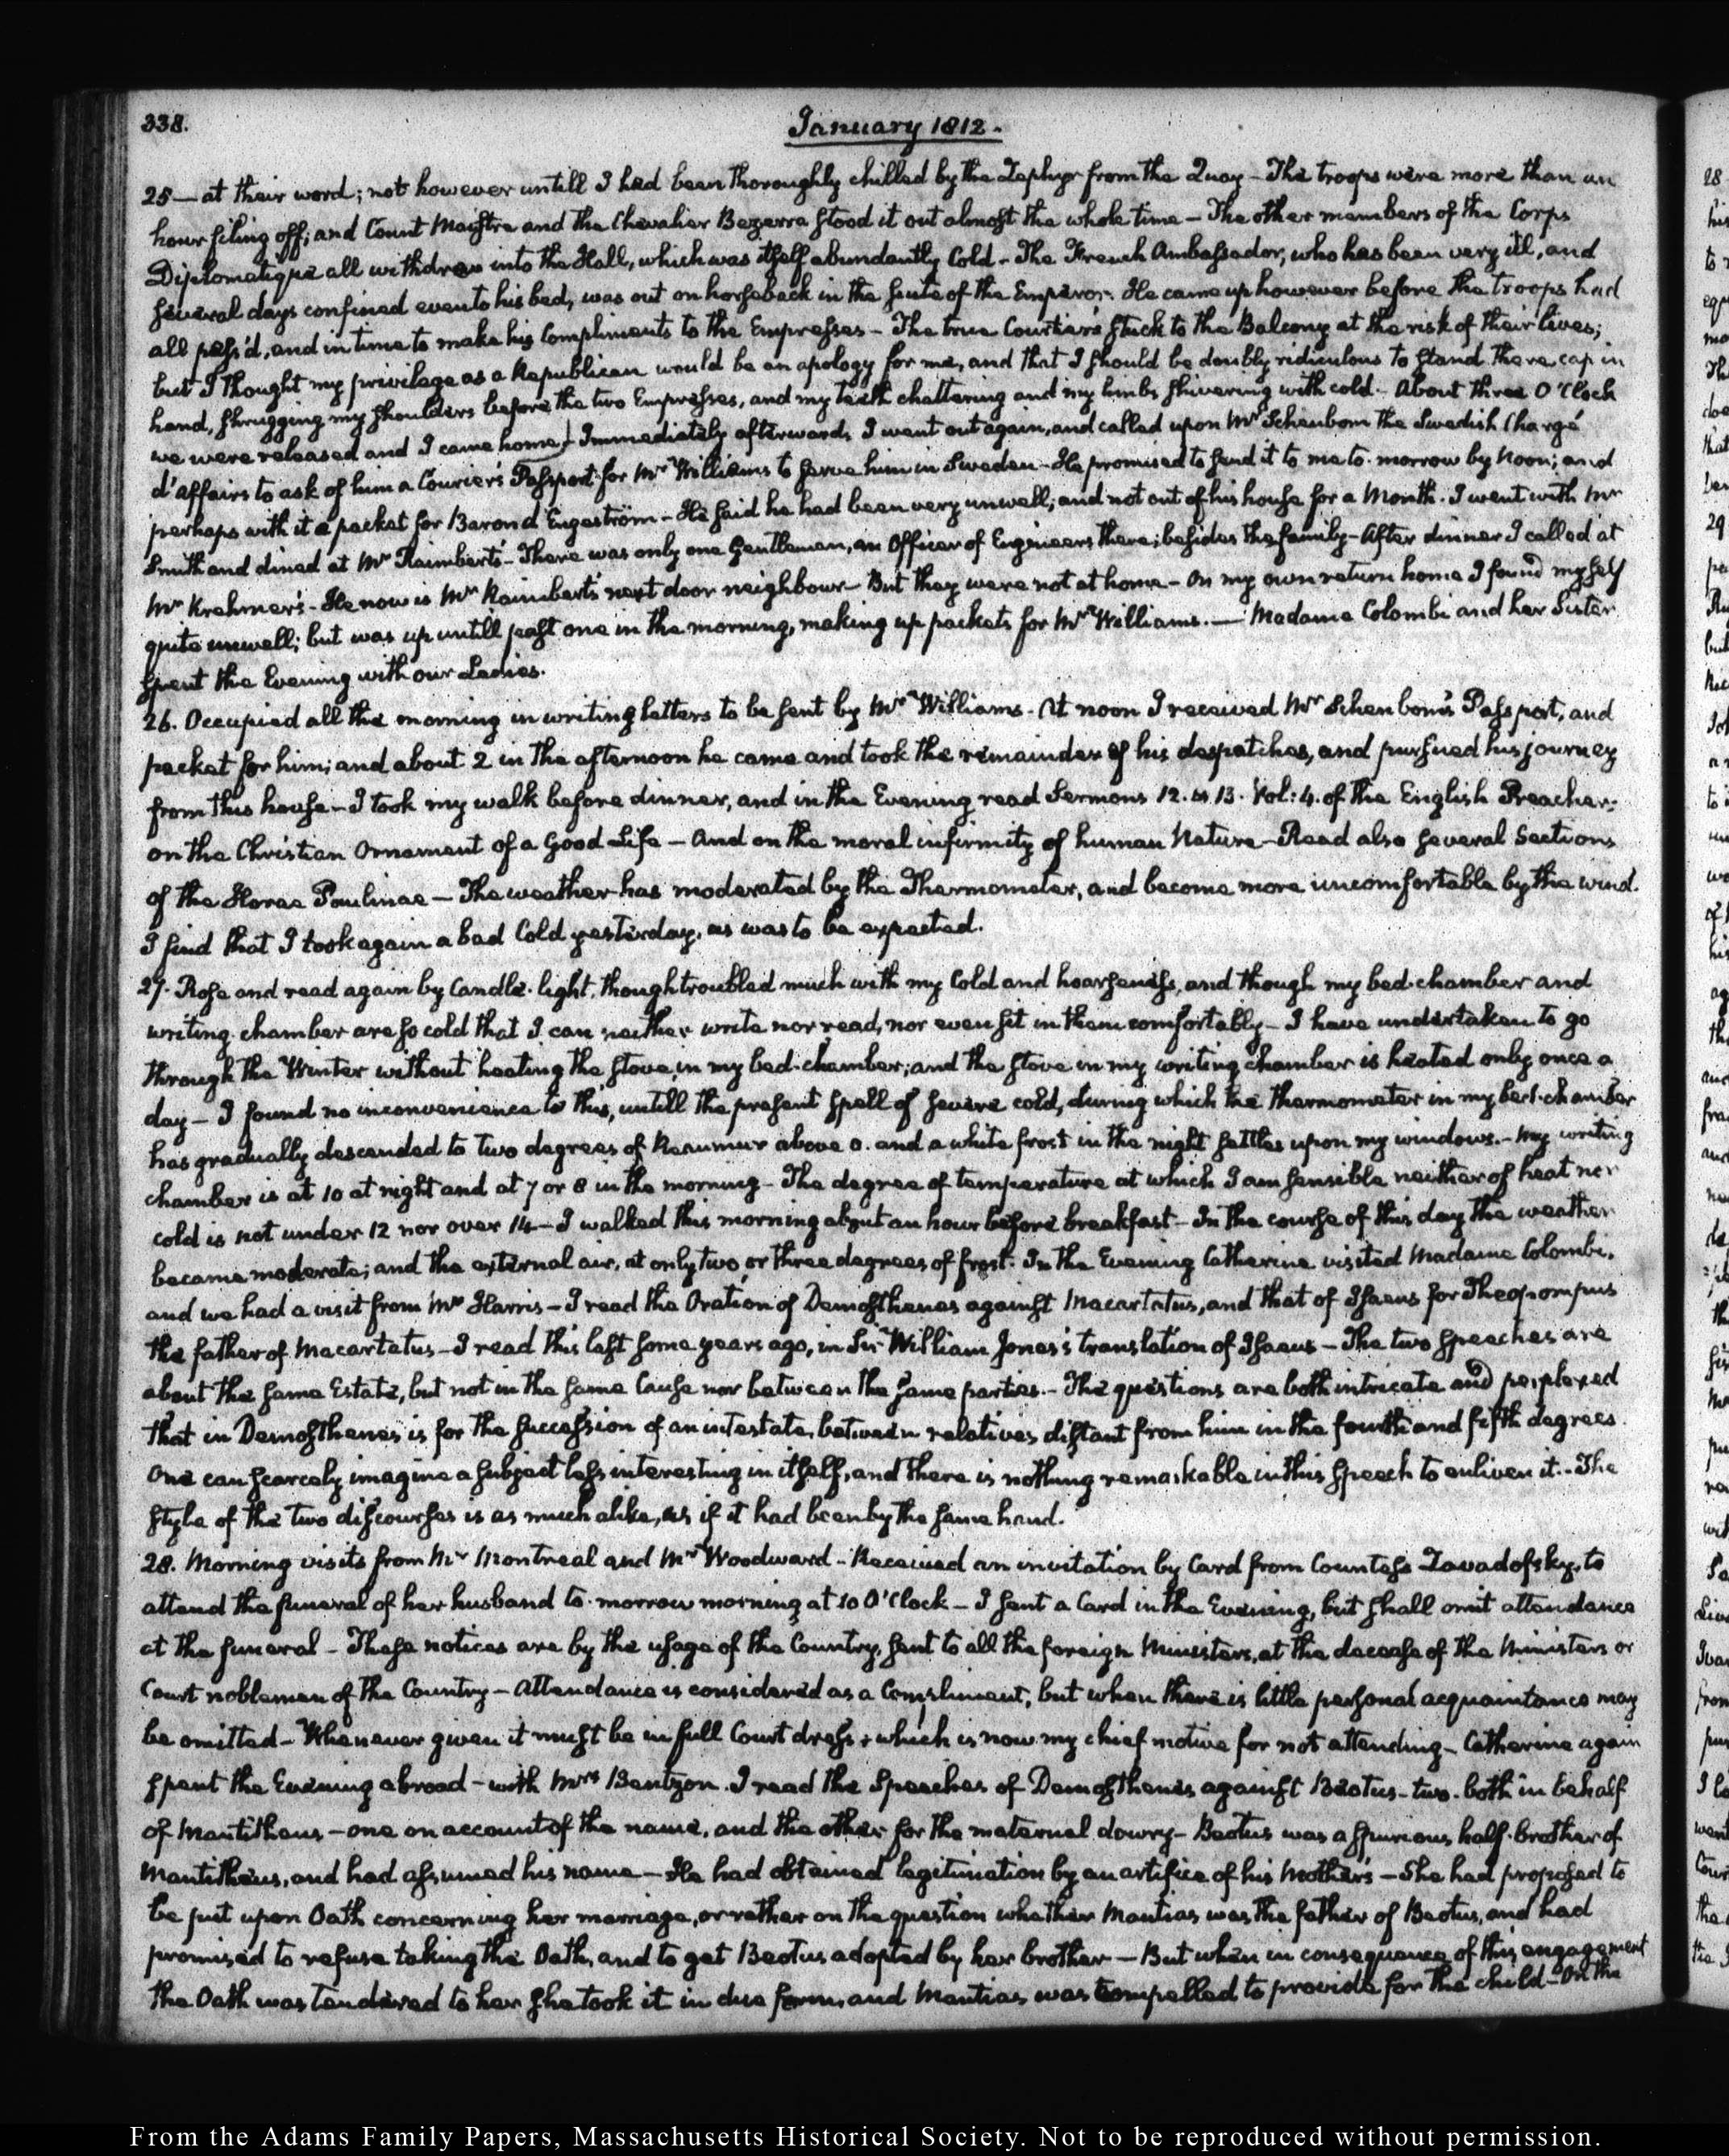 338.
January 1812.
25— at their word; not however untill I had been thoroughly chilled by the Zephyr from the Quay – The troops were more than an
hour filing off; and Count Maistre and the Chevalier Bezerra stood it out almost the whole time – The other members of the Corps
Diplomatique all withdrew into the Hall, which was itself abundantly Cold – The French Ambassador, who has been very ill, and
several days confined even to his bed, was out on horseback in the suite of the Emperor. He came up however before the troops had
all pass'd, and in time to make his Compliments to the Empresses – The true Courtiers stuck to the Balcony at the risk of their lives;
but I thought my privilege as a Republican would be an apology for me, and that I should be doubly ridiculous to stand there, cap in
hand, shrugging my shoulders before the two Empresses, and my teeth chattering and my limbs shivering with cold – About three O'Clock
we were released and I came home. Immediately afterwards I went out again, and called upon Mr. Schenbom the Swedish Chargé
d'affairs to ask of him a Courier's Passport for Mr. Williams to serve him in Sweden – He promised to send it to me to-morrow by Noon; and
perhaps with it a packet for Baron d'Engeström – He said he had been very unwell, and not out of his house for a Month. I went with Mr.
Smith and dined at Mr. Raimbert's – There was only one Gentleman, an Officer of Engineers there; besides the family – After dinner I called at
Mr. Krehmer's – He now is Mr. Raimbert's next door neighbour – But they were not at home – On my own return home I found myself
quite unwell; but was up untill past one in the morning, making up packets for Mr. Williams. — Madame Colombi and her Sister
spent the Evening with our Ladies.
26. Occupied all the morning in writing letters to be sent by Mr. Williams. At noon I received Mr. Schenbom's Passport, and
packet for him; and about 2 in the afternoon he came and took the remainder of his despatches, and pursued his journey
from this house – I took my walk before dinner, and in the Evening read Sermons 12. & 13. Vol: 4. of the English Preacher:
on the Christian Ornament of a Good Life – And on the moral infirmity of human Nature – Read also several Sections
of the Horae Paulinae – The weather has moderated by the Thermometer, and become more uncomfortable by the wind.
I find that I took again a bad Cold yesterday, as was to be expected.
27. Rose and read again by Candle-light, though troubled much with my Cold and hoarseness, and though my bed-chamber and
writing-chamber are so cold that I can neither write nor read, nor even sit in them comfortably – I have undertaken to go
through the Winter without heating the stove in my bed-chamber; and the stove in my writing chamber is heated only once a
day – I found no inconvenience to this, untill the present spell of severe cold, during which the thermometer in my bed-chamber
has gradually descended to two degrees of Reaumur above 0. and a white frost in the night settles upon my windows. – My writing
chamber is at 10 at night and at 7 or 8 in the morning – The degree of temperature at which I am sensible neither of heat nor
cold is not under 12 nor over 14 – I walked this morning about an hour before breakfast – In the course of this day the weather
became moderate; and the external air, at only two or three degrees of frost. In the Evening Catherine visited Madame Colombi,
and we had a visit from Mr. Harris – I read the Oration of Demosthenes against Macartatus, and that of Isaeus for Theopompus
the father of Macartatus – I read this last some years ago, in Sir William Jones's translation of Isaeus – The two speeches are
about the same Estate, but not in the same Cause nor between the same parties. – The questions are both intricate and perplexed
that in Demosthenes is for the succession of an intestate, between relatives distant from him in the fourth and fifth degrees.
One can scarcely imagine a subject less interesting in itself, and there is nothing remarkable in this speech to enliven it. – The
style of the two discourses is as much alike, as if it had been by the same hand.
28. Morning visits from Mr. Montreal and Mr. Woodward – Received an invitation by Card from Countess Zavadofsky, to
attend the funeral of her husband to-morrow morning at 10 O'Clock – I sent a Card in the Evening, but shall omit attendance
at the funeral – These notices are by the usage of the Country, sent to all the foreign Ministers, at the decease of the Ministers or
Court noblemen of the Country – Attendance is considered as a Compliment, but when there is little personal acquaintance may
be omitted – Whenever given it must be in full Court dress, which is now my chief motive for not attending – Catherine again
spent the Evening abroad – with Mrs. Bentzon. I read the Speeches of Demosthenes against Beotus – two. both in behalf
of Mantitheus – one on account of the name, and the other for the maternal dowry – Beotus was a spurious half-brother of
Mantitheus, and had assumed his name – He had obtained legitimation by an artifice of his Mother's – She had proposed to
be put upon Oath concerning her marriage, or rather on the question whether Mantias was the father of Beotus, and had
promised to refuse taking the Oath, and to get Beotus adopted by her brother – But when in consequence of this engagement
the Oath was tendered to her she took it in due form, and Mantias was compelled to provide for the child – On the
From the Adams Family Papers, Massachusetts Historical Society. Not to be reproduced without permission.